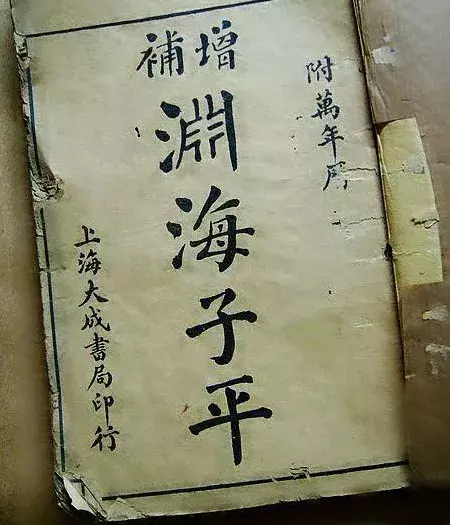 附萬年局
增補
淵海子平
上海大成書局印行